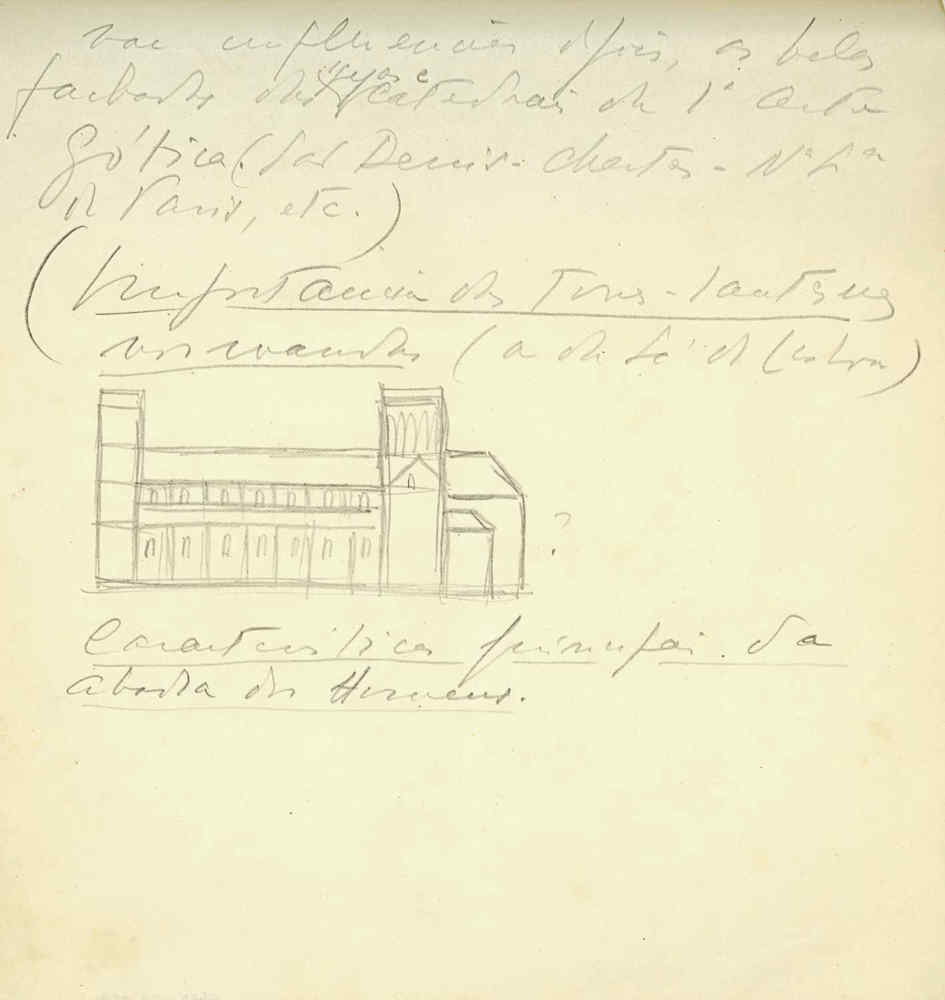 vae influenciar depois, as belas
fachadas das igrejas e Catedrais da 1ª Arte
Gótica (São Denis - Chartres - Nª Srª
de Paris, etc.)
(Importancia das Torres-lanternas
normandas (a da Sé de Lisboa)
?
Caracteristicas principais da
abadia dos Homens.